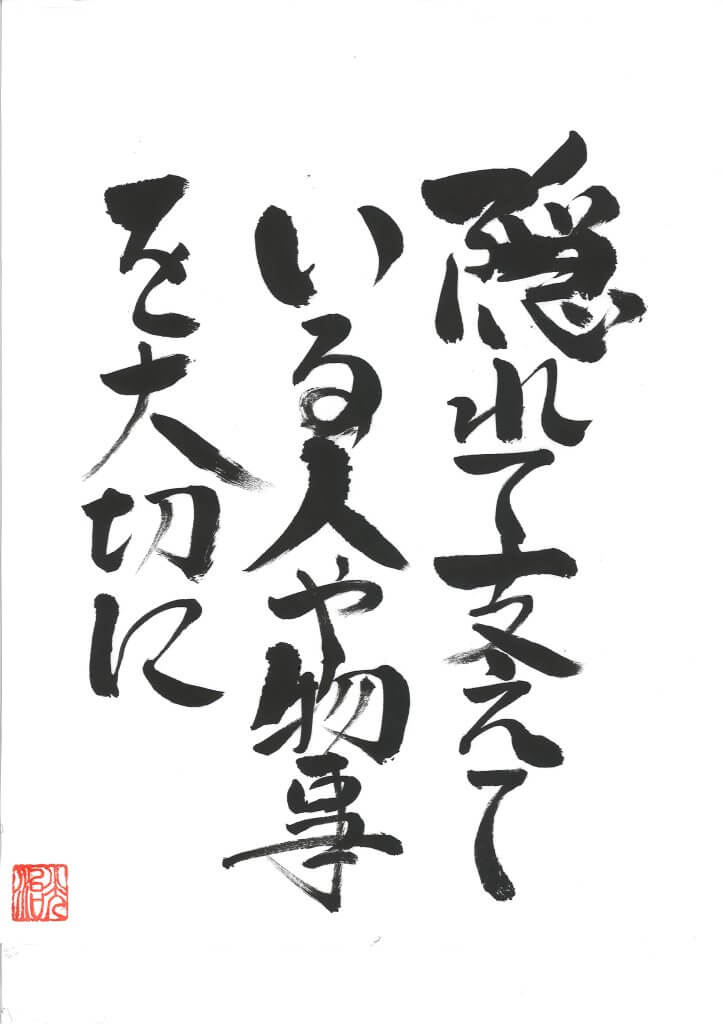 隠れて支えて
いる人や物事
を大切に